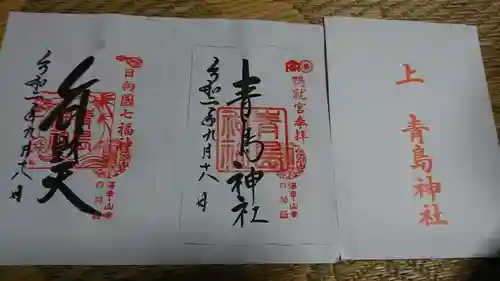 日向国七福神
弁財天
令和二年九月十八日
鴨就宮奉拝
青島神社
青島神社
令和二年九月十八日
上
青島神社